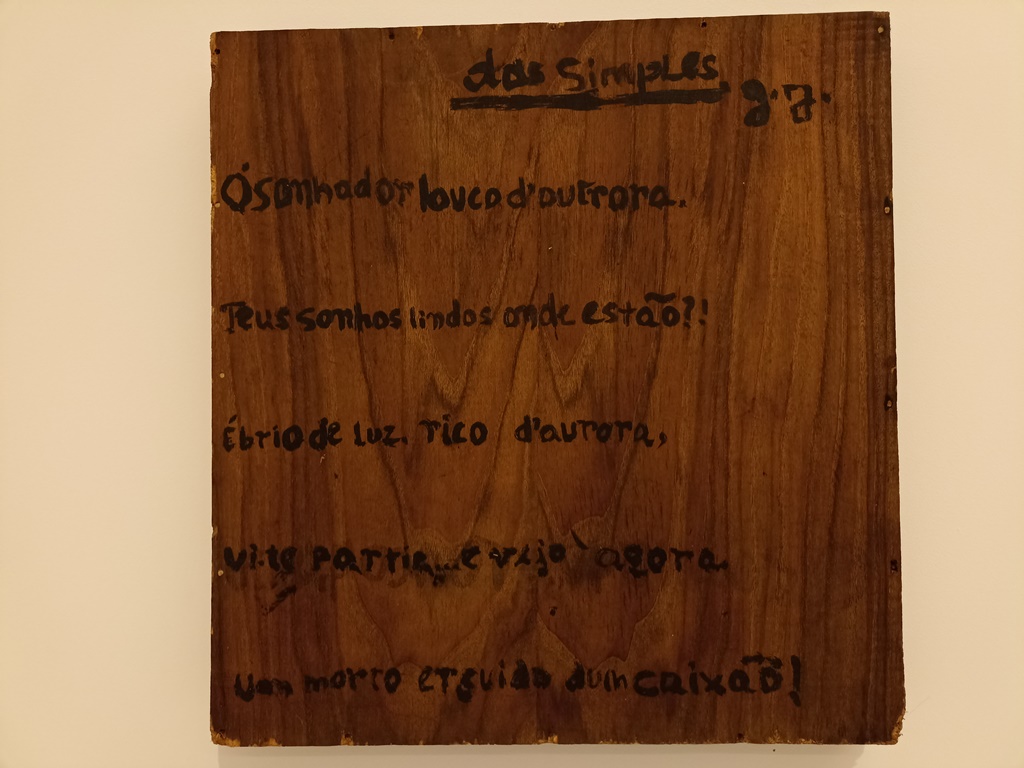 dos Simples
g.J.
Ó sonhador louco d'outrora.
Teus sonhos lindos onde estão?!
Ébrio de luz. rico d'aurora,
vi-te partir, e vejo agora
um morto erguido dum caixão!